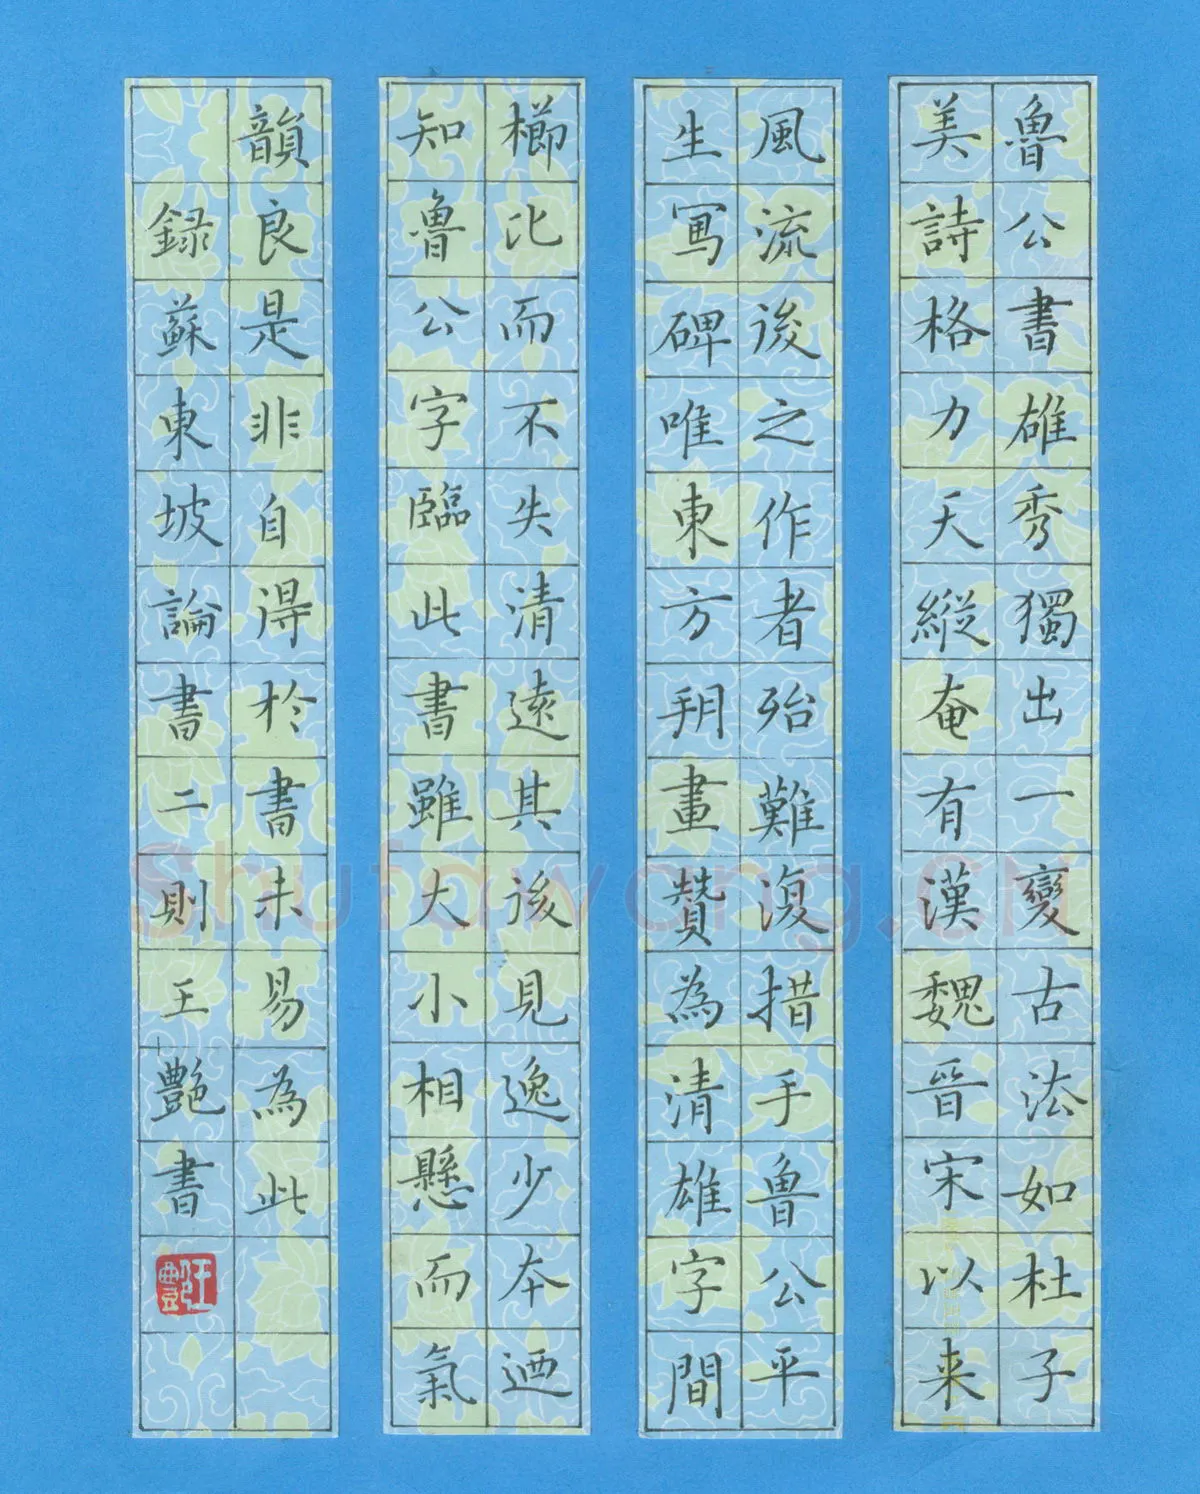 魯公書雄秀獨出一變古法如杜子
美詩格力天縱奄有漢魏晉宋以来
風流後之作者殆難復措手魯公平
生寫碑唯東方朔畫贊為清雄字間
櫛比而不失清遠其後見逸少本迺
知魯公字臨此書雖大小相懸而氣
韻良是非自得於書未易為此
録蘇東坡論書二則王艷書
王艷
Shufawang.cn